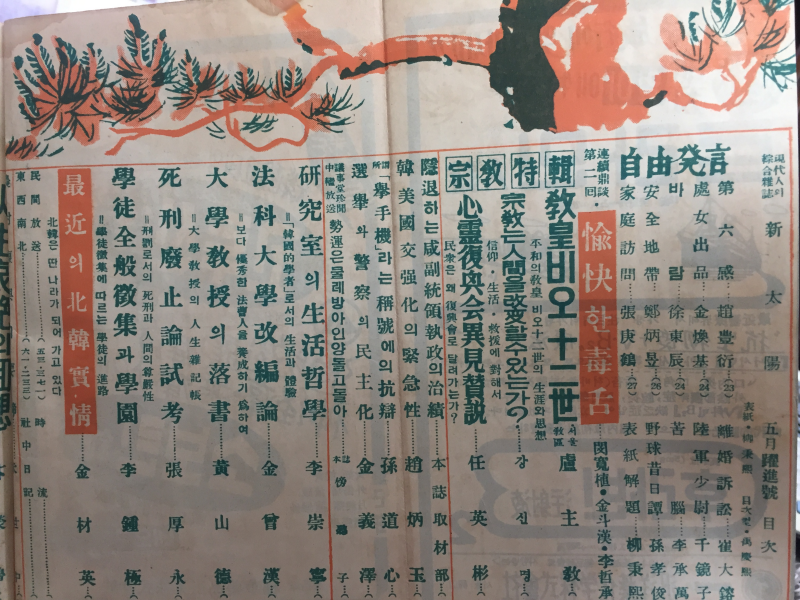 現代人의
綜合雜誌
新太陽
五月躍進號 目次
自由発言
第六感 趙豊衍 (23)
離婚訴訟 崔大鎔
處女出品 金煥基 (24)
陸軍少尉 千鏡子
바람 徐東辰 (24)
苦腦 李承萬
安全地帶 鄭炳昱 (26)
野球昔日譚 孫孝俊
家庭訪問 張庚鶴 (27)
表紙解題 柳秉熙
連續鼎談
第二回
愉快한 毒舌
閔寬植·金斗漢·李哲承
宗教特輯
教皇비오十二世
서울教區 盧主教
平和의 教皇 비오十二世의 生涯와 思想
宗教는 人間을 改変할 수 있는가? 강신명
信仰·生活·救援에 對해서
心靈復興会異見賛説 任英彬
民衆은 왜 復興會로 달려가는가?
隱退하는 咸副統領執政의 治績 本誌取材部
韓美國交强化의 緊急性 趙炳玉
所謂「擧手機」라는 稱號에의 抗辯 孫道心
選擧와 警察의 民主化 金義澤
議事堂珍聞
中繼放送
勢運은 물레방아인양 돌고돌아
研究室의 生活哲學 李崇寧
〓「韓國的學者」로서의 生活과 體驗
法科大學改編論 金曾漢
〓보다 優秀한 法曹人을 養成하기 爲하여
大學教授의 落書 黃山德
〓大學教授의 人生雜記帳
死刑廢止論試考 張厚永
〓刑罰로서의 死刑과 人間의 尊嚴性
學徒全般徵集과 學園 李鍾極
〓學徒徵集에 따르는 學徒의 進路
最近의 北韓實情 金材英
北韓은 딴 나라가 되어 가고 있다
民間放送
時流
東西南北
社中日記